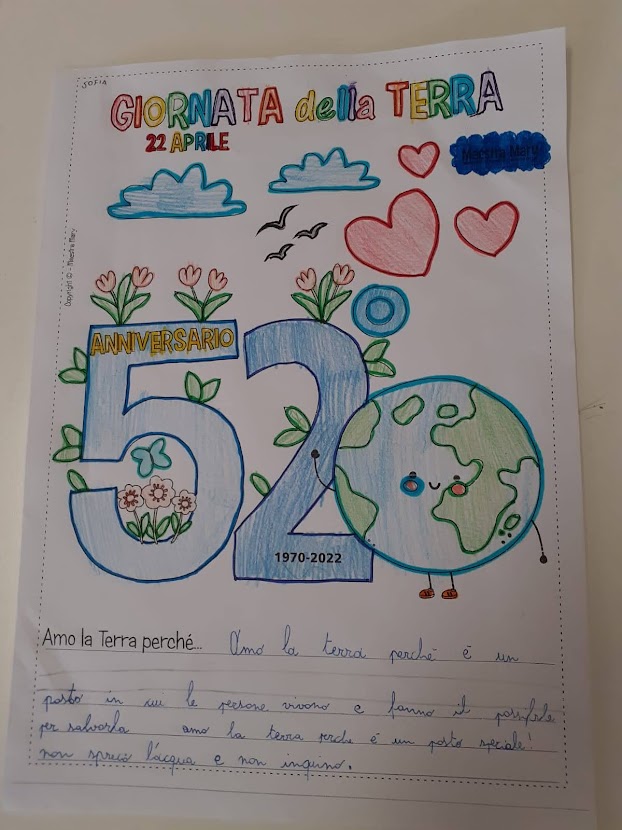 SOFIA
GIORNATA della TERRA
22 APRILE
Maestra Mary
Copyright © - Maestra Mary
ANNIVERSARIO
52°
1970-2022
Amo la Terra perché... Amo la terra perché è un
posto in cui le persone vivono e fanno il possibile
per salvarla amo la terra perche è un posto speciale!
non spreco l'acqua e non inquino.